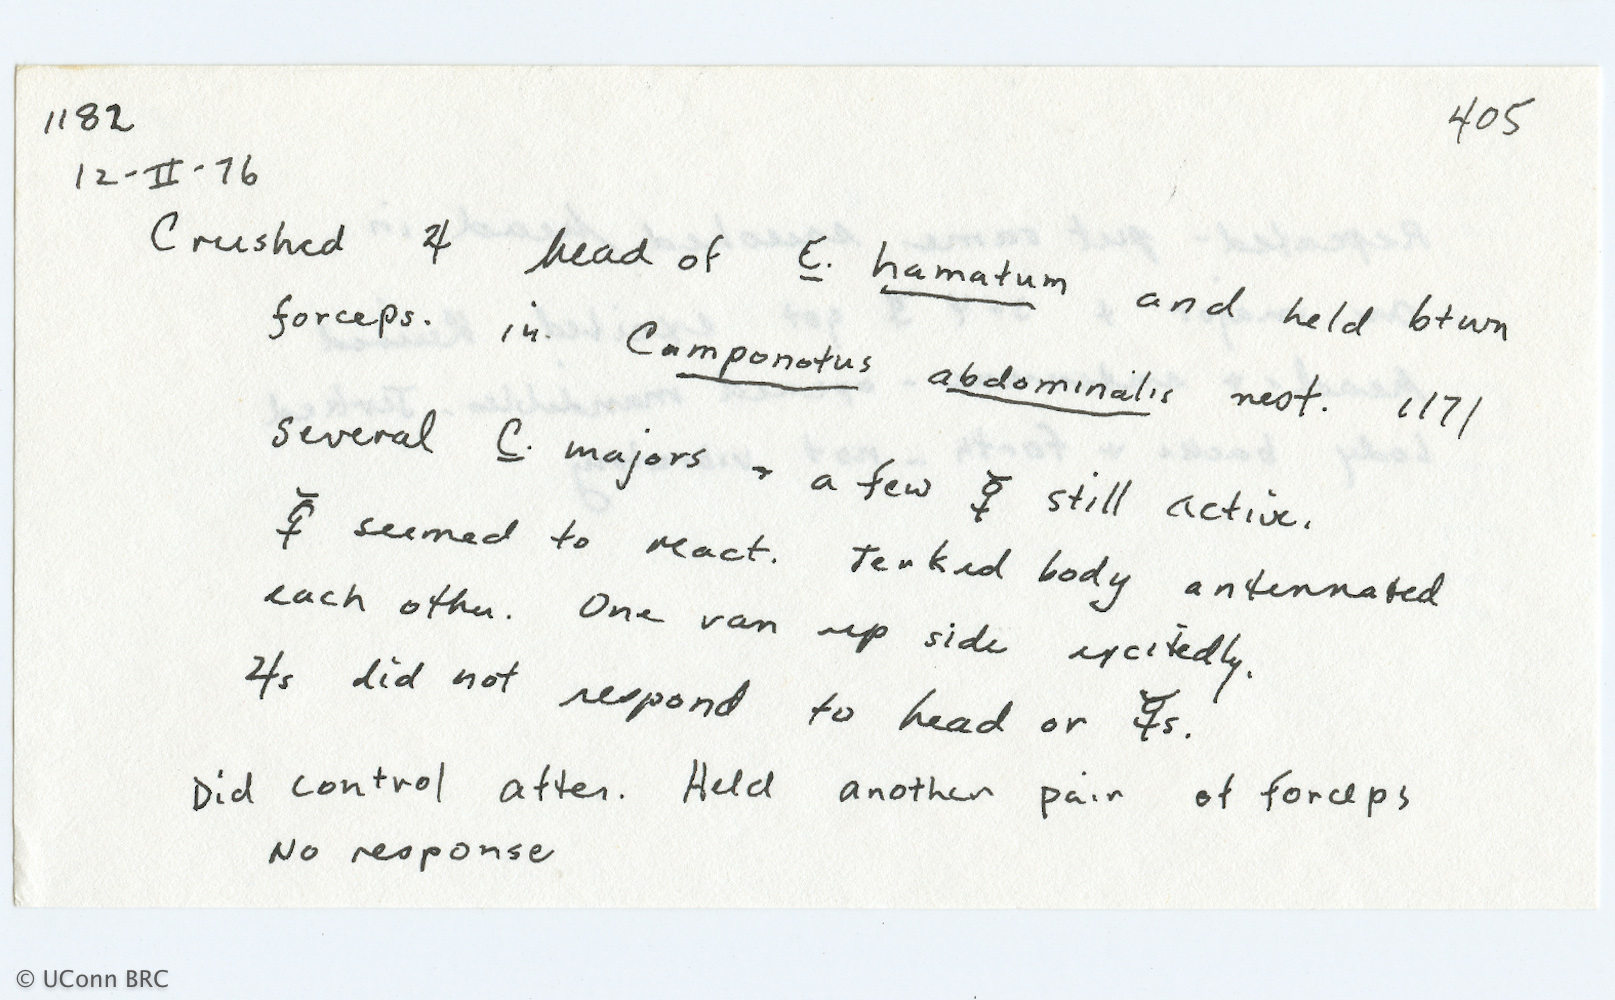 1182
405
12-II-76
Crushed ♃ head of E. hamatum and held btwn
forceps. in Camponotus abdominalis nest. 1171
Several C. majors + a few ☿ still active.
☿ seemed to react. Jerked body antennated
each other. One ran up side excitedly.
♃s did not respond to head or ☿s.
Did control after. Held another pair of forceps
No response
© UConn BRC